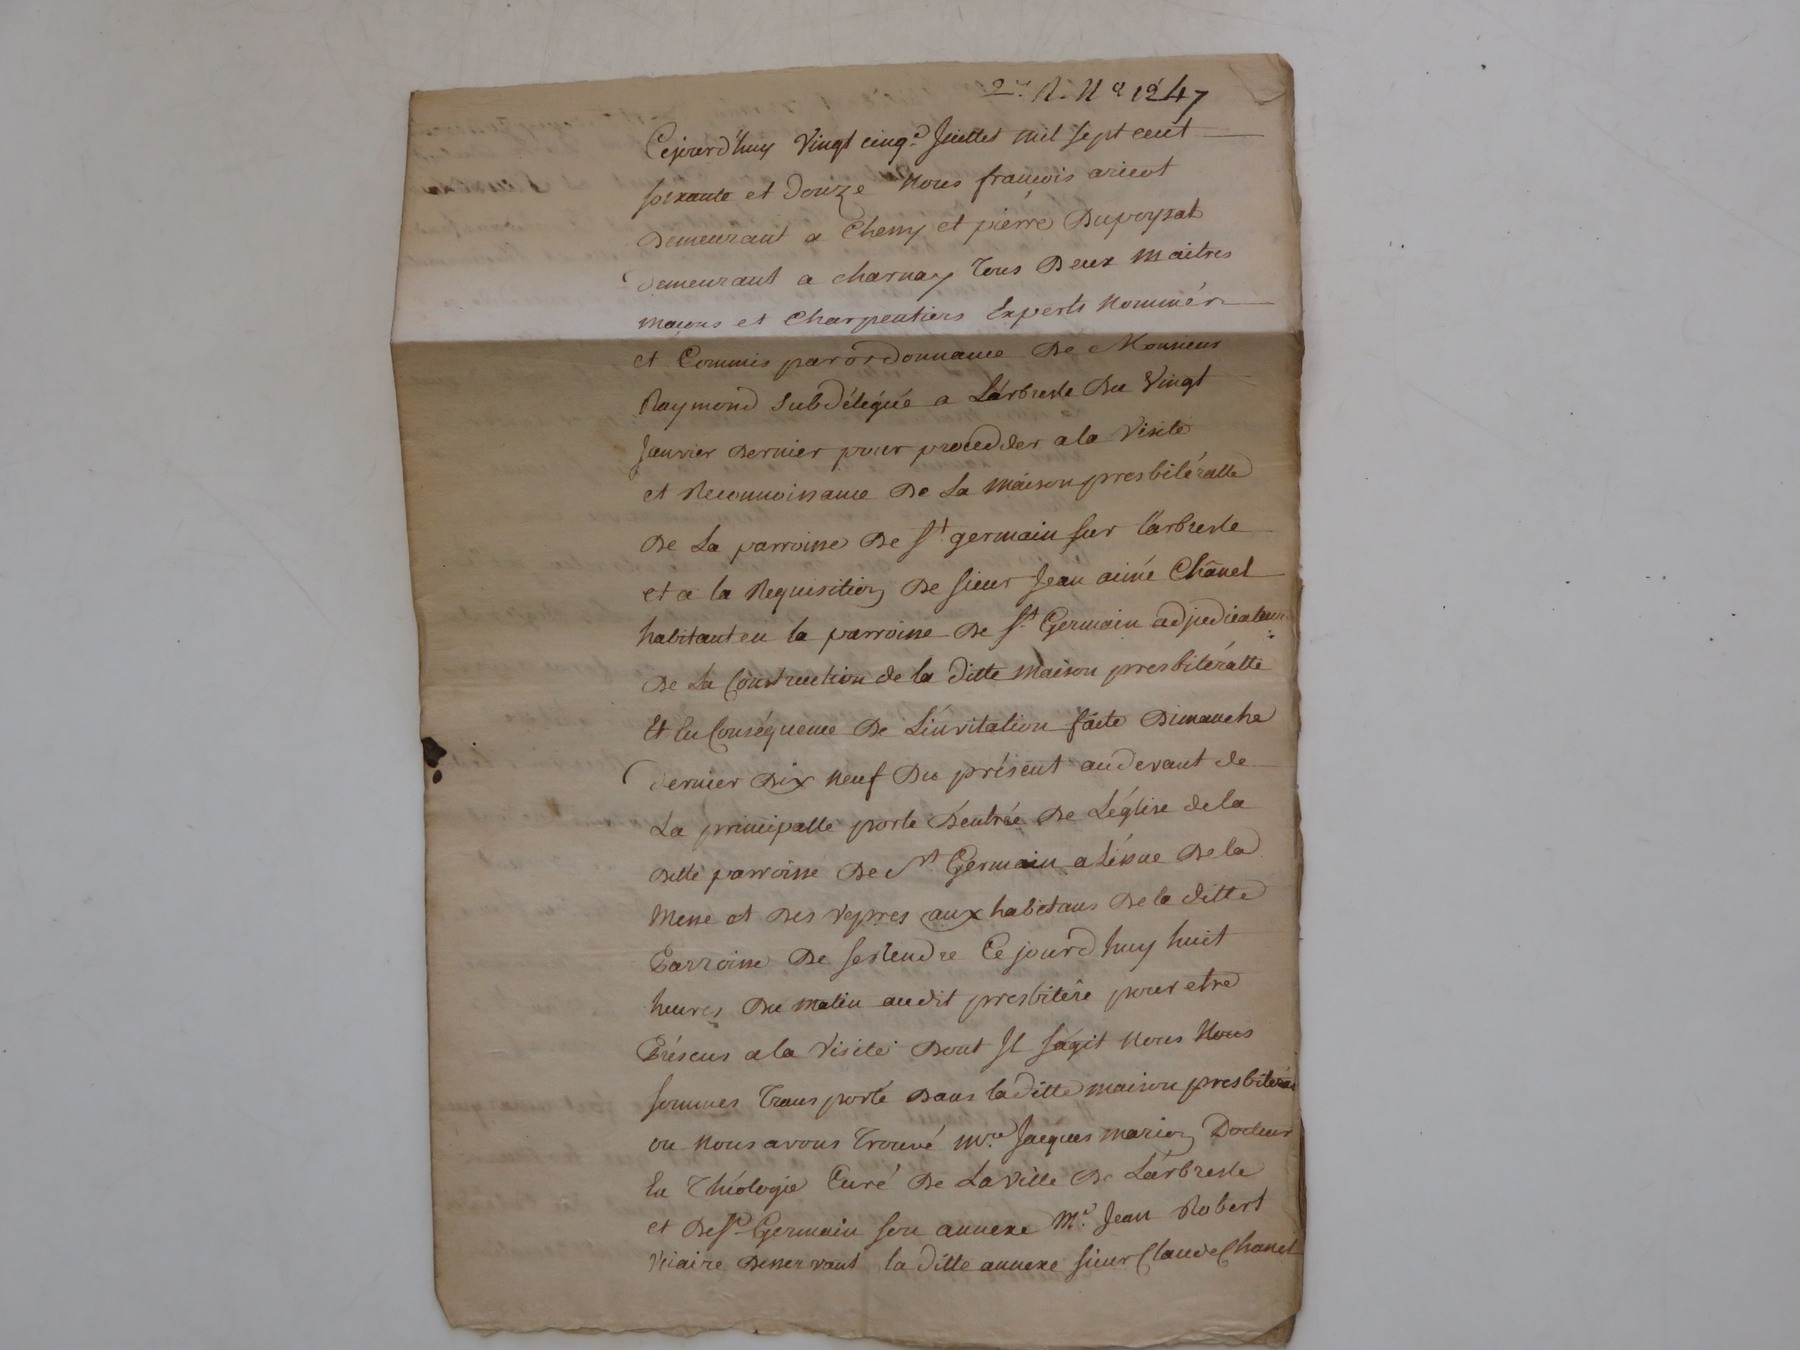 2.e R. N° 1247
Cejourd'huy vingt cinq.e Juillet mil sept cent
soixante et douze nous françois aricot
demeurant a Chessy et pierre Dupoyzat
demeurant a charnay tous deux maitres
maçons et Charpentiers Experts nommés
et Commis par ordonnance de Monsieur
Raymond Subdélégué a Larbresle du vingt
Janvier dernier pour procedder a la visite
et Reconnoissance de la maison presbitéralle
de la parroisse de St germain sur l'arbresle
et a la Requisition de sieur Jean aimé Chânel
habitant en la parroisse de St Germain adjudicateur
de la Construction de la ditte maison presbitéralle
Et En Conséquence de L'invitation faite dimanche
dernier dix neuf du présent au devant de
La principalle porte d'entrée de L'église de la
ditte parroisse de St Germain a L'issue de la
Messe et des vepres aux habitans de la ditte
Parroisse de se rendre Ce jourd'huy huit
heures du matin audit presbitère pour etre
Présens a la visite dont Il s'agit nous Nous
sommes transporté dans la ditte maison presbitéral
ou nous avons trouvé m.re Jacques marion Docteur
En Théologie Curé de La ville de L'arbresle
et de St Germain son annexe M.e Jean Robert
Vicaire desservant la ditte annexe sieur Claude Chanel